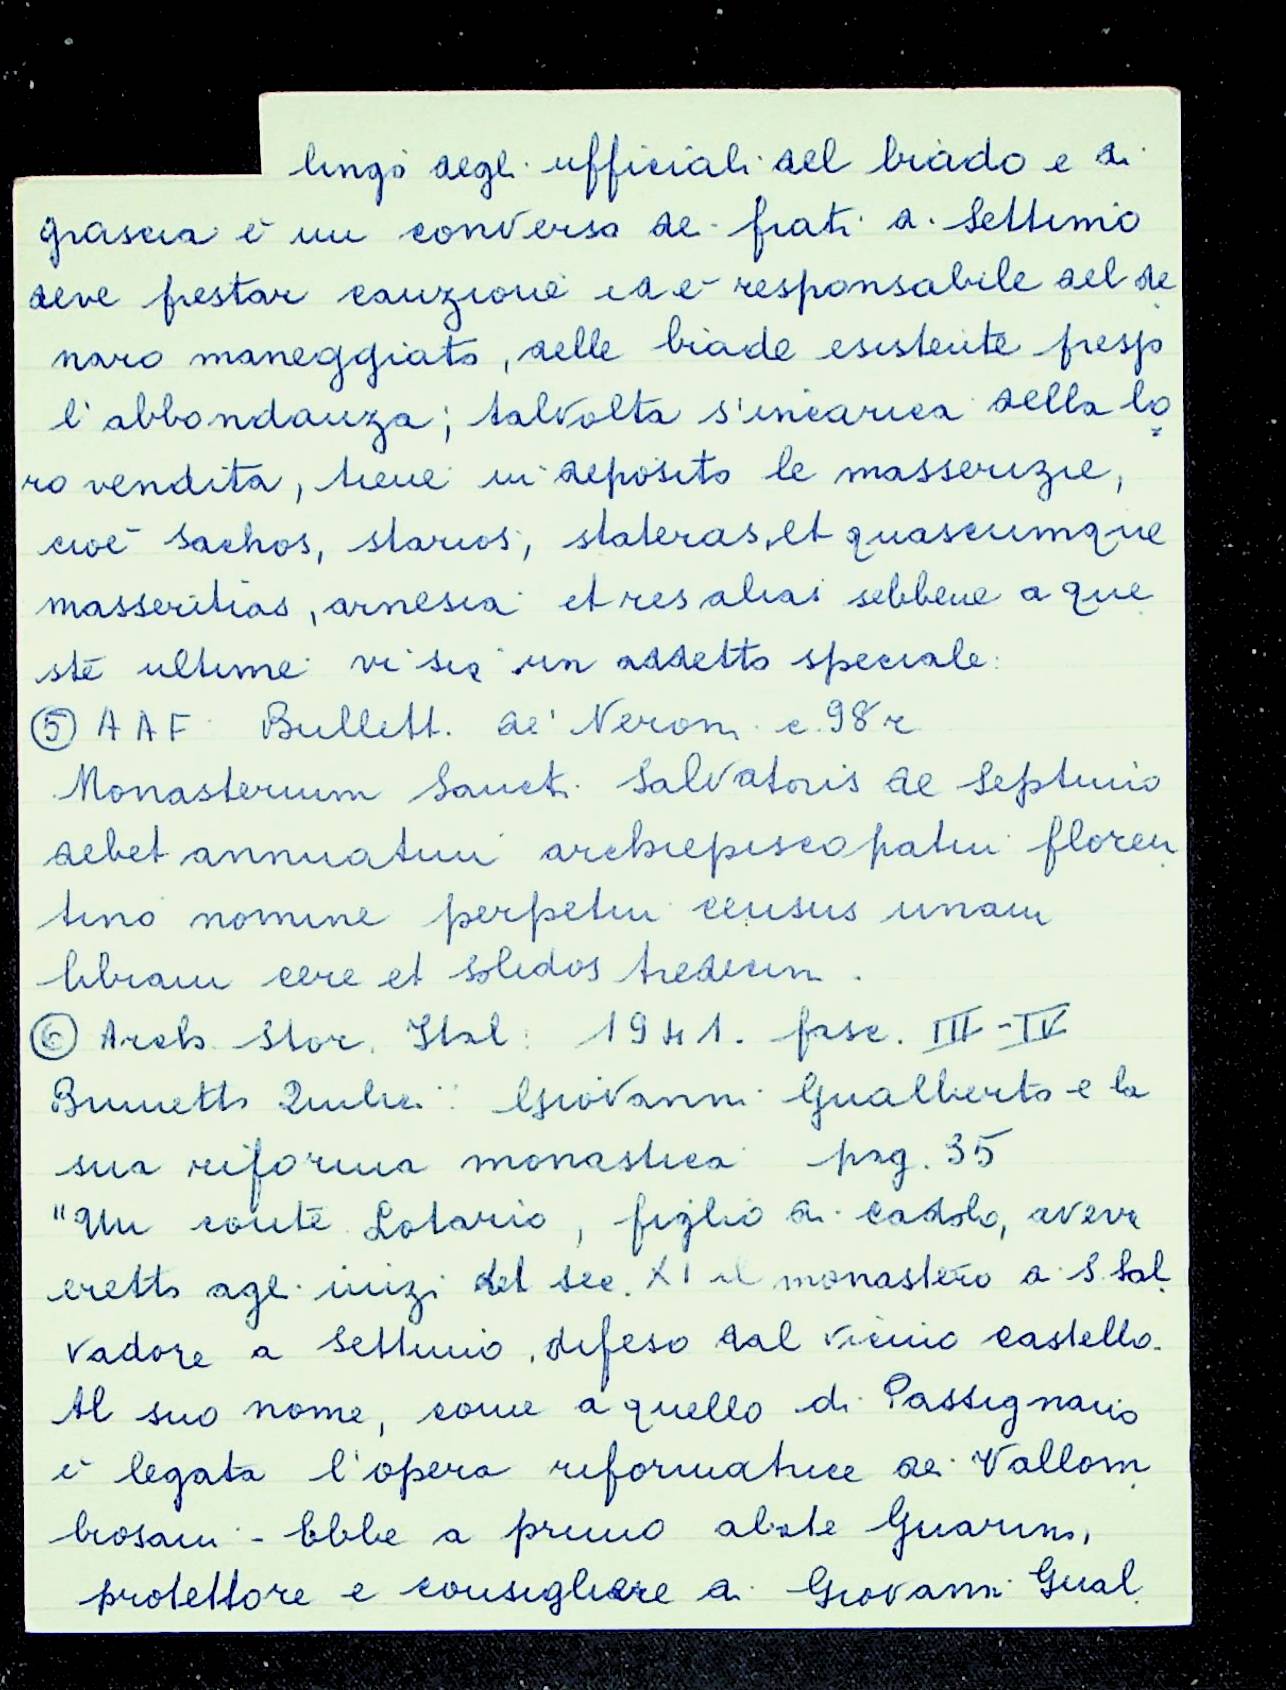 lingo degli ufficiali del biado e di
grascia è un converso dei frati di Settimo
deve prestar cauzione ed è responsabile del de
naro maneggiato, delle biade esistente presso
l'abbondanza; talvolta s'incarica della lo
ro vendita, tiene in deposito le masserizie,
cioè sachos, starios, stateras, et quascumque
masseritias, arnesia et res alias sebbene a que
ste ultime vi sia un addetto speciale:
⑤ AAF Bullett. de' Neroni c. 98 r
Monasterium Sancti Salvatoris de Septimo
debet annuatim archiepiscopatui floren
tino nomine perpetui census unam
libram cere et solidos tredecim.
⑥ Arch. Stor. Ital: 1941. fasc. III-IV
Brunetto Quilici: Giovanni Gualberto e la
sua riforma monastica pag. 35
"Un conte Lotario, figlio di Cadolo, aveva
eretto agli inizi del sec. XI il monastero a S. Sal
vadore a Settimo, difeso dal vicino castello.
Al suo nome, come a quello di Passignano
è legata l'opera riformatrice dei Vallom
brosani - Ebbe a primo abate Guarino,
protettore e consigliere di Giovanni Gual